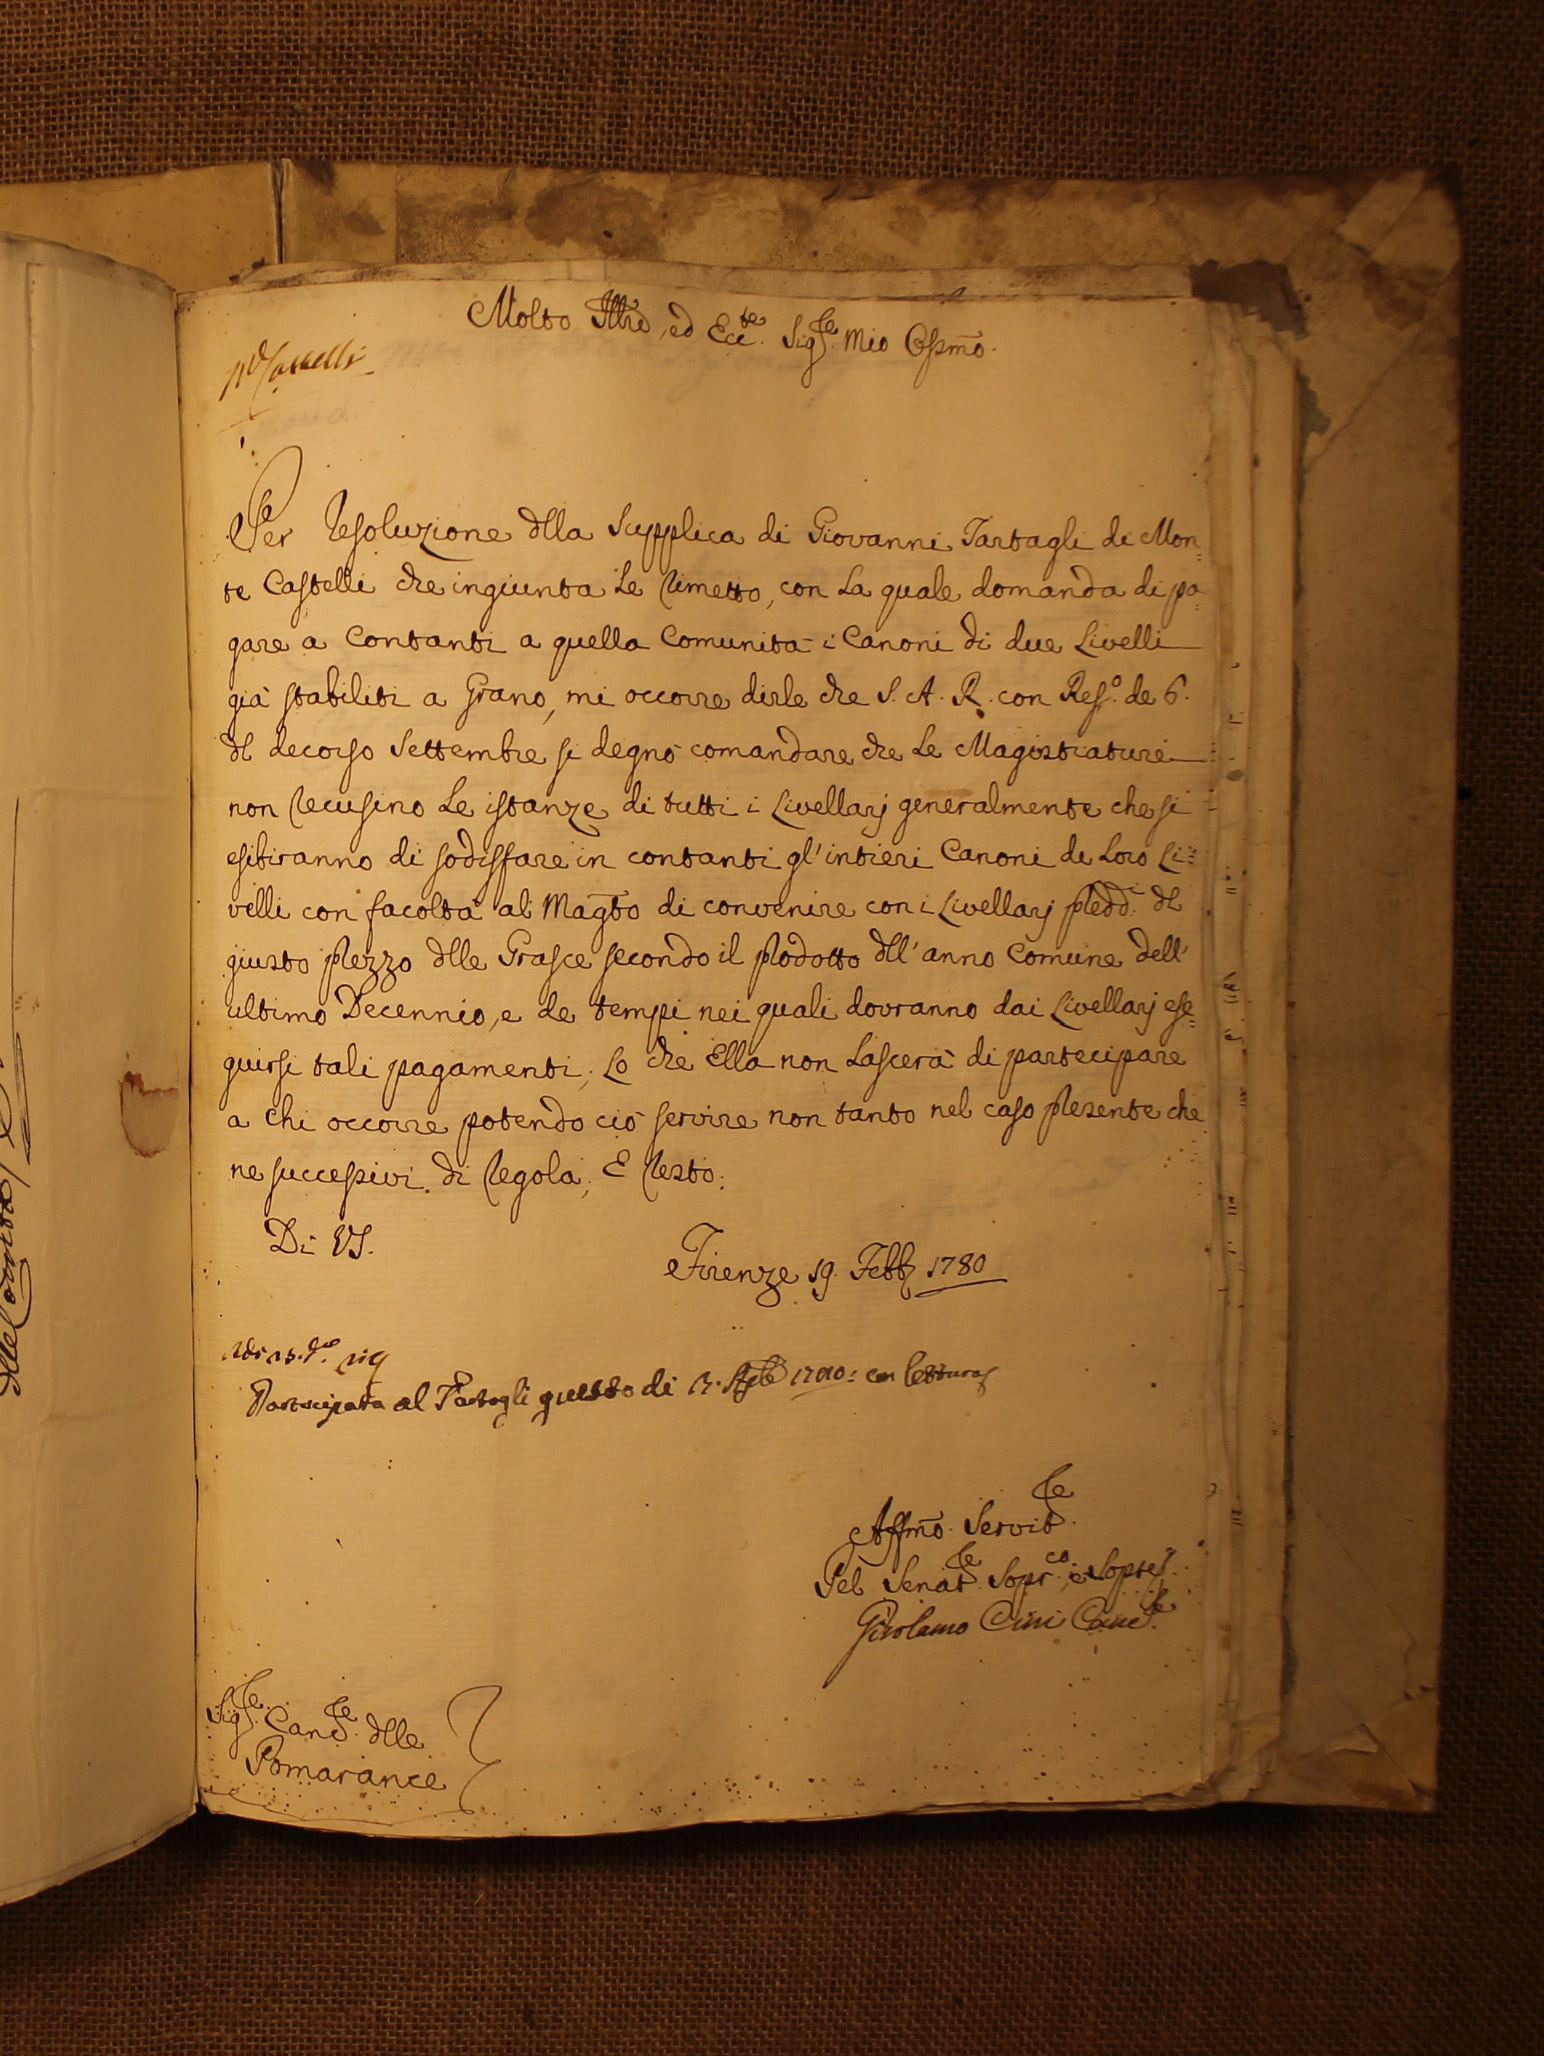 Molto Illre, ed Ecc.te Sig.re Mio Oss̄mo.
Castelli
Per Resoluzione dlla Supplica di Giovanni Tartagli di Mon=
te Castelli che ingiunta Le Rimetto, con La quale domanda di pa=
gare a Contanti a quella Comunità i Canoni di due Livelli
già stabiliti a Grano, mi occorre dirle che S. A. R. con Res.o de 6.
dl decorso Settembre si degnò comandare che Le Magistrature
non recusino Le istanze di tutti i Livellarj generalmente che si
esibiranno di sodisfare in contanti gl'intieri Canoni de Loro Li=
velli con facoltà al Mag̅to di convenire con i Livellarj predd.i dl
giusto prezzo dlle Grasce secondo il prodotto dll'anno Comune dell'
ultimo Decennio, e de tempi nei quali dovranno dai Livellarj ese=
guirsi tali pagamenti. Lo che Ella non Lascerà di partecipare
a chi occorre potendo ciò servire non tanto nel caso presente che
ne successivi di regola; E resto.
Di VS.
Firenze 19. Febb. 1780
Partecipata al Tartagli questo di
Affm̄o. Servit.re
Pel Senat.re Sopr.co, e Sopte
Girolamo Cini Canc.re
Sig.re Canc.re dlle
Pomarance